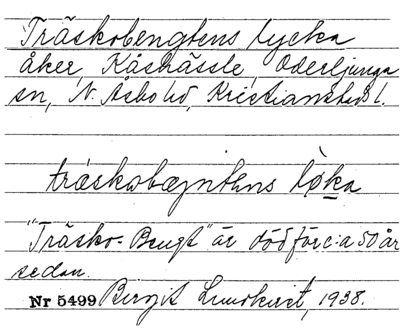 Träskobengtens lycka
åker, Kåshässle, Oderljunga
sn, N. Åsbo hd, Kristianstads l.
träskobæŋntens løka
"Träsko-Bengt" är död för c:a 50 år
sedan.
Nr 5499 Bergit Lundkvist, 1938.